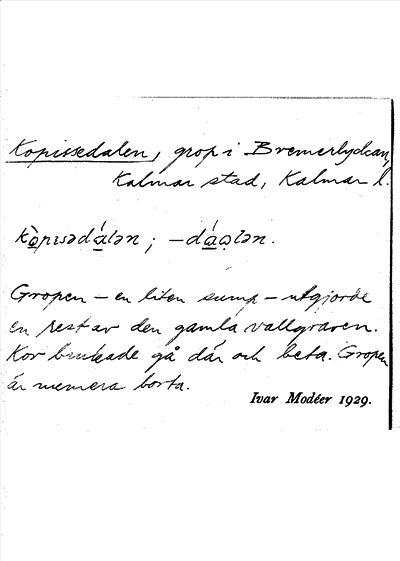 Kopissedalen, grop i Bremerlyckan,
Kalmar stad, Kalmar l.
kò̱pısədá̱lən; –dá̱o̱lən.
Gropen – en liten sump – utgjorde
en rest av den gamla vallgraven.
Kor brukade gå där och beta. Gropen
är numera borta.
Ivar Modéer 1929.